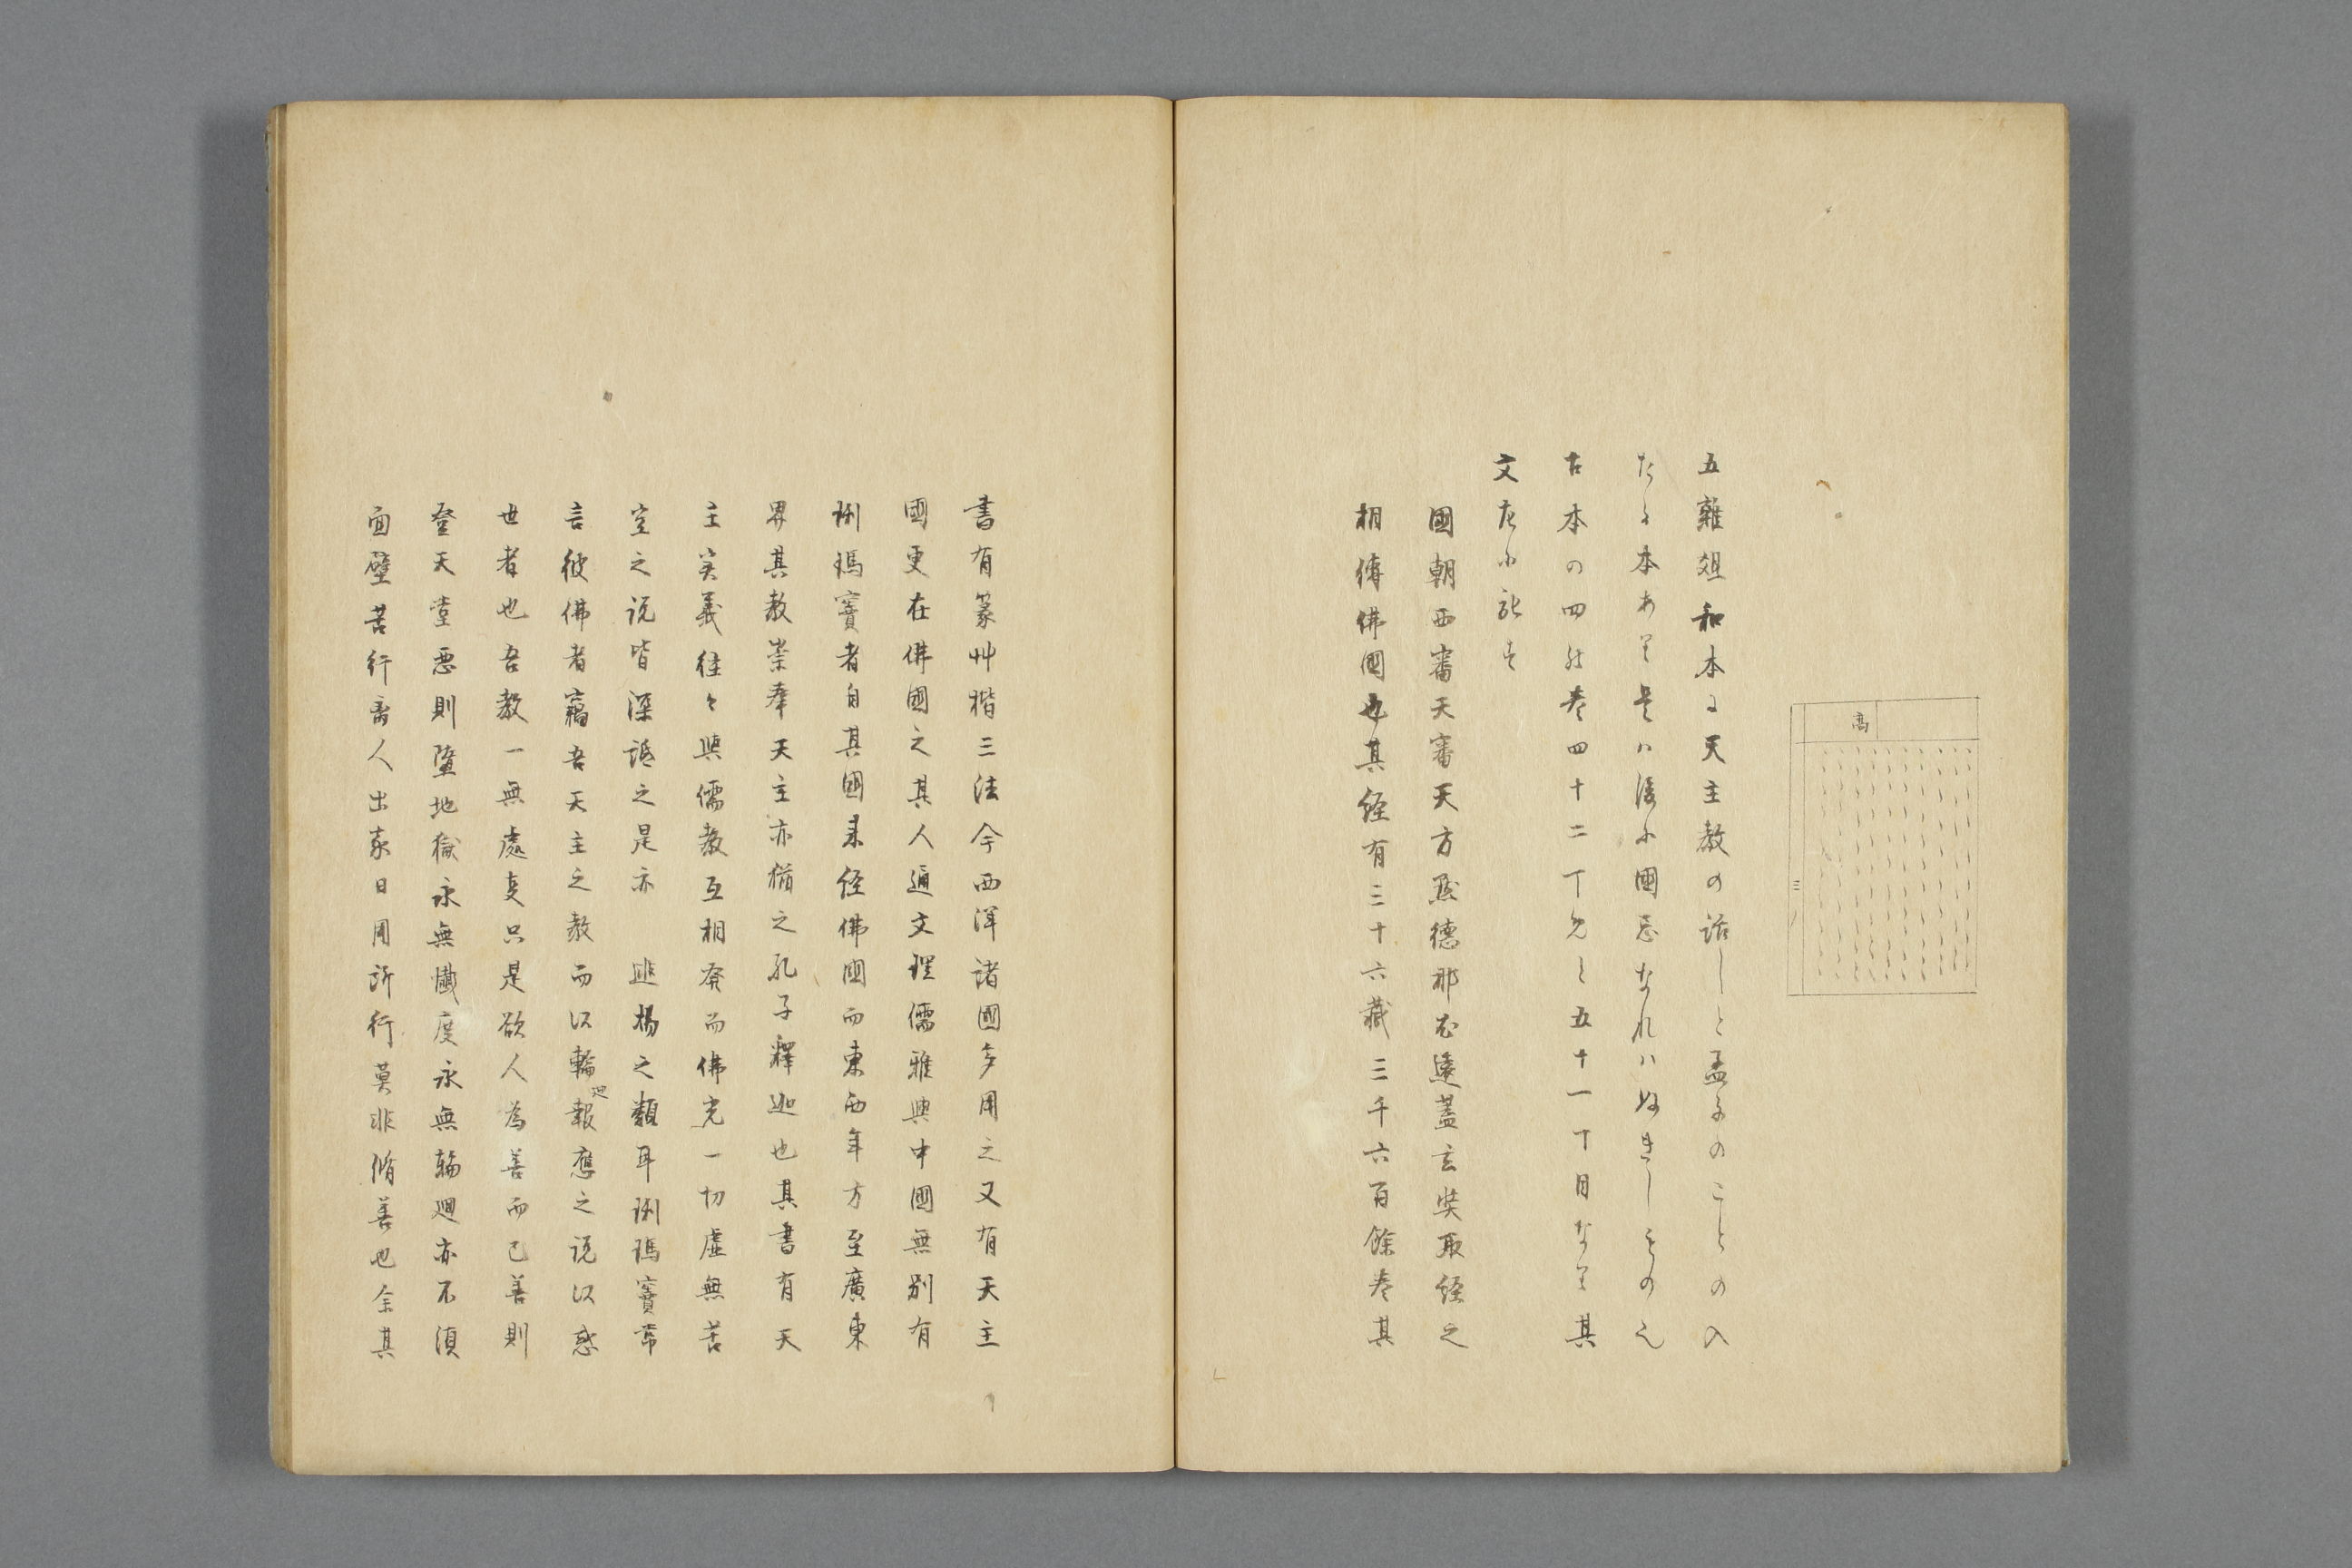 高
三
五雜俎和本に天主教の話しと孟子のことの入
たる本あり是ハ後に國忌なれハぬきしもの也
古本の四の巻四十二丁めと五十一丁目なり其
文左に記す
國朝西審天審天方黙德那玄奘取經之
相傳佛國也其經有三十六藏三千六百餘巻其
書有篆艸楷三法今西洋諸國多用之又有天主
國更在佛國之其人通文理儒雅與中國無別有
琍瑪竇者自其國来經佛國而東四年方至廣東
界其教崇奉天主亦猶之孔子釋迦也其書有天
主实義徃々與儒教互相發而佛老一切虚無苦
空之说皆深詆之是亦 逃楊之類耳琍瑪竇常
言彼佛者竊吾天主之教而以輪廻報應之说以惑
世者也吾教一無處叓只是欲人為善而已善則
登天堂悪則墮地獄永無懺度永無輪廻亦不湏
面壁苦行离人出家日用所行莫非脩善也余其